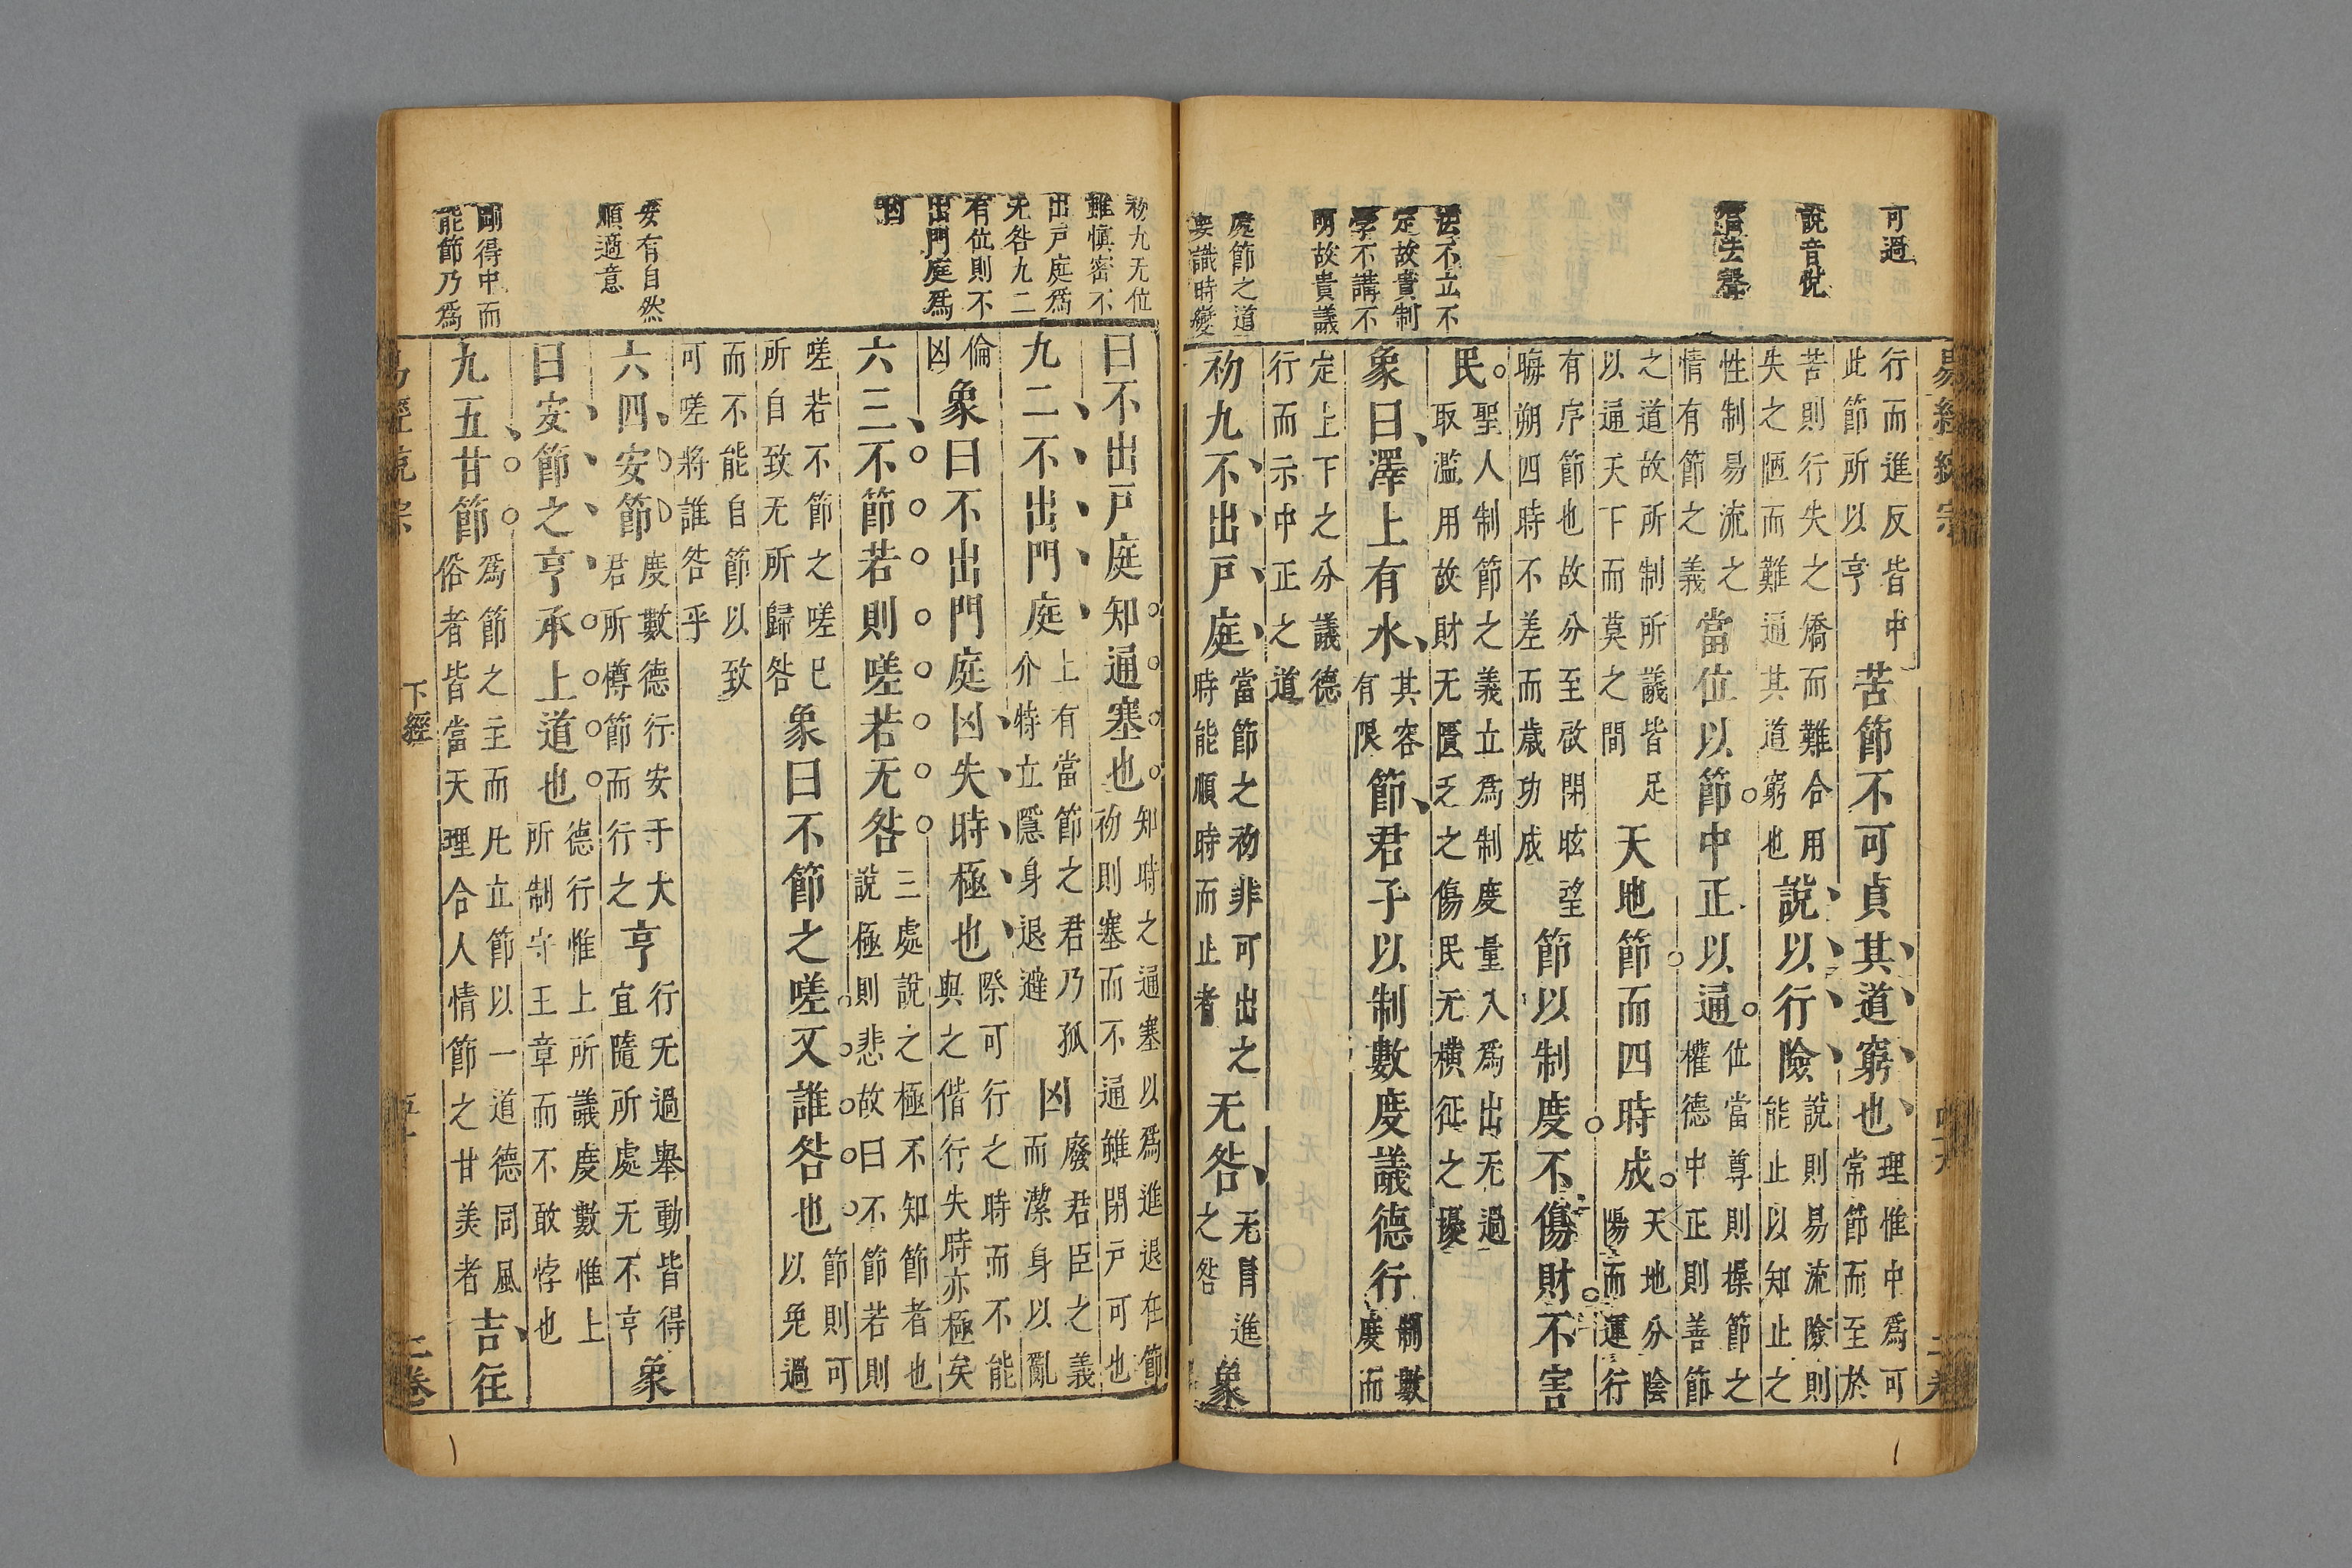 可過
說音悅
法不立不
定故貴制
學不講不
明故貴議
處節之道
要識時變
行而進反皆中
此節所以亨
苦節不可貞其道窮也
理惟中為可
常節而至於
苦則行失之矯而難合用
失之陋而難通其道窮也
說以行險
說則易流險則
能止以知止之
性制易流之
情有節之義
當位以節中正以通
位當尊則操節之
權德中正則善節
之道故所制所議皆足
以通天下而莫之間
天地節而四時成
天地分陰
陽而運行
有序節也故分至啟閉晦望
晦朔四時不差而歲功成
節以制度不傷財不害
民
聖人制節之義立為制度量入為出无過
取濫用故財无匱乏之傷民无橫征之擾
象曰澤上有水
其容
有限
節君子以制數度議德行
制數
度而
定上下之分議德
行而示中正之道
初九不出戶庭
當節之初非可出之
時能順時而止者
无咎
无冒進
之咎
象
初九无位
雖慎密不
出戶庭為
无咎九二
有位則不
出門庭為
凶
安有自然
順適意
剛得中而
能節乃為
曰不出戶庭知通塞也
知時之通塞以為進退在節
初則塞而不通雖閉戶可也
九二不出門庭
上有當節之君乃孤
介特立隱身退避
凶
廢君臣之義
而潔身以亂
倫
凶
象曰不出門庭凶失時極也
際可行之時而不能
與之偕行失時亦極矣
六三不節若則嗟若无咎
三處說之極不知節者也
說極則悲故曰不節若則
嗟若不節之嗟已
所自致无所歸咎
象曰不節之嗟又誰咎也
節則可
以免過
而不能自節以致
可嗟將誰咎乎
六四安節
度數德行安于大
君所樽節而行之
亨
行无過舉動皆得
宜隨所處无不亨
象
曰安節之亨承上道也
德行惟上所議度數惟上
所制守王章而不敢悖也
九五甘節
為節之主而凡立節以一道德同風
俗者皆當天理合人情節之甘美者
吉往
下經